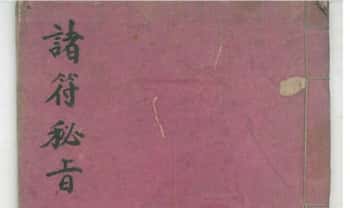 諸符秘旨